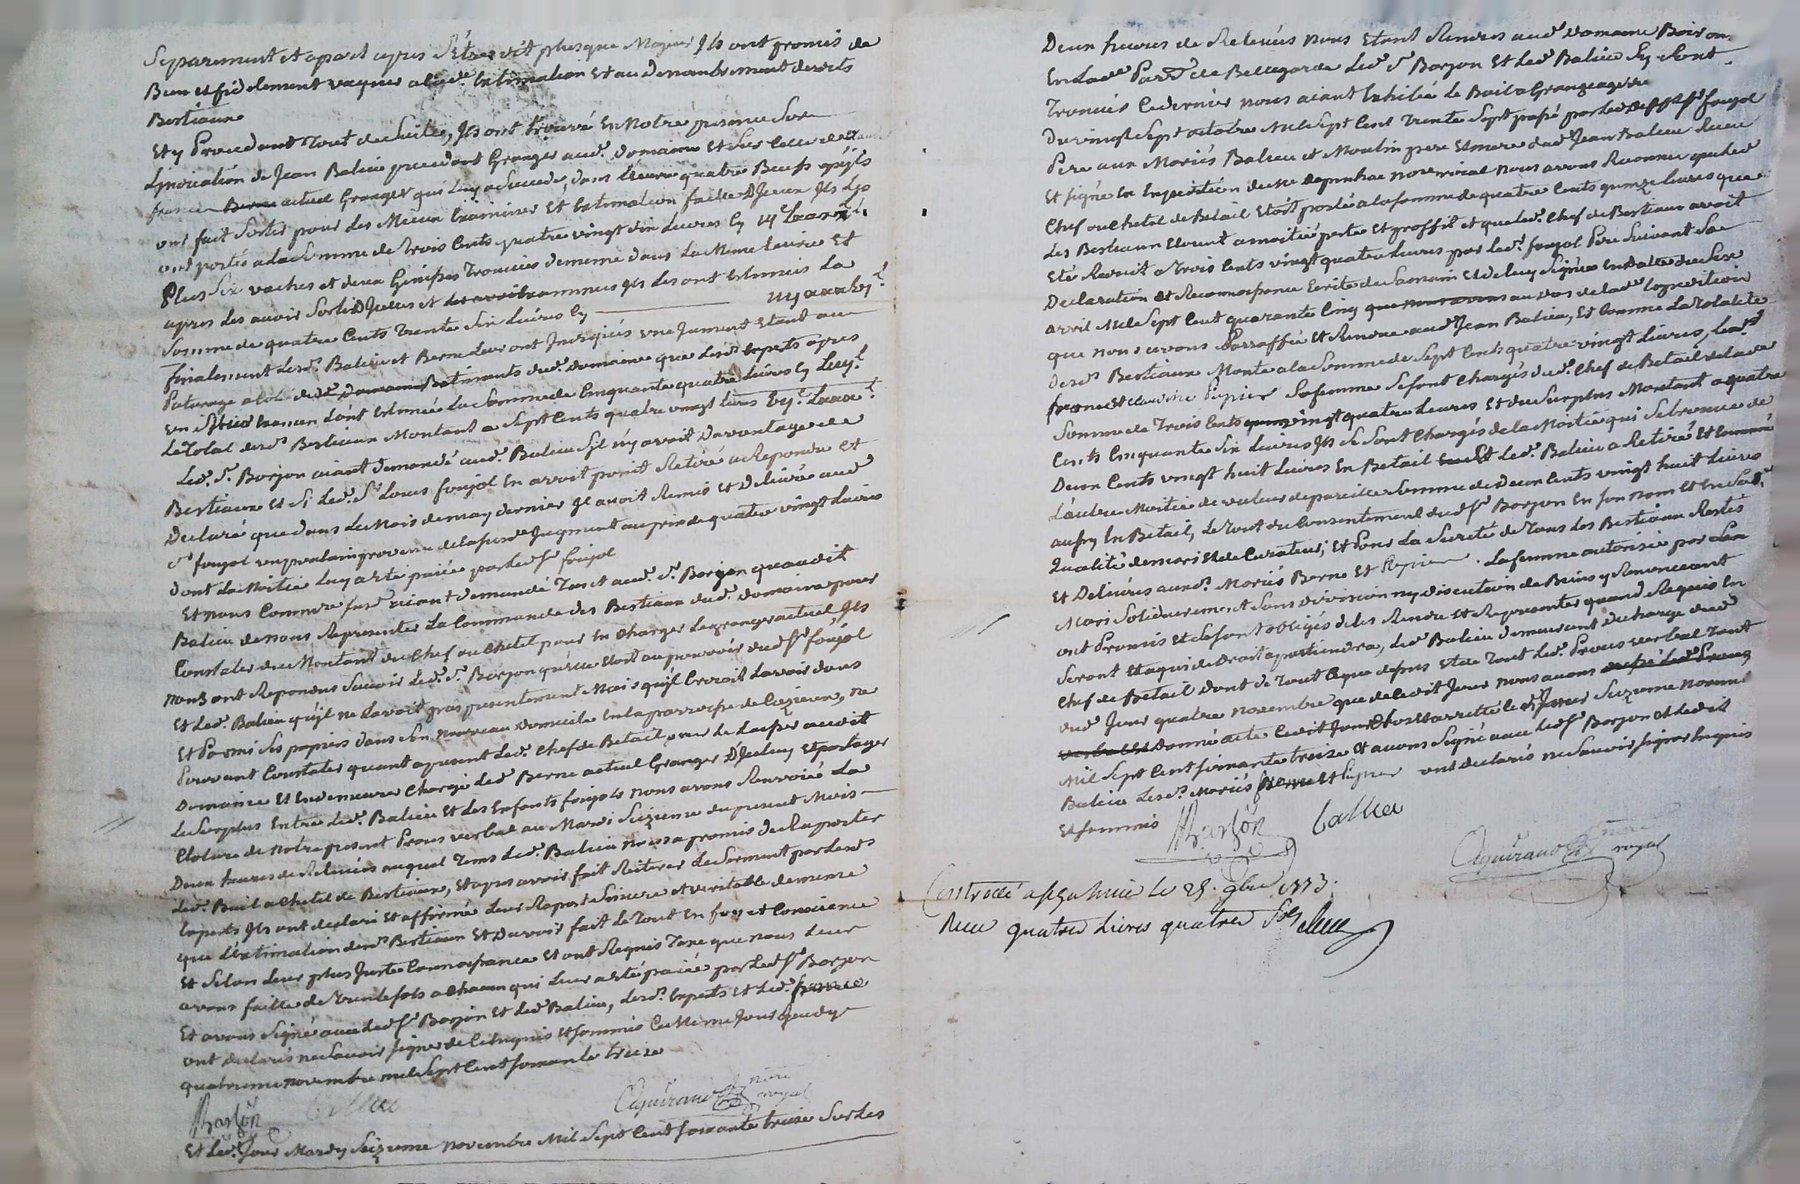 Separement et apart apres s'être dit plusque Majeurs Ils ont promis de
Bien et fidelement vaquer alad.e Extimation et au Denombrement desdts
Bestiaux
Et y Procedant Tout de Suitte, Ils ont trouvé En Notre presence Sur
L'indication de Jean Balieu precedant Granger aud.t Domaine et sur celle de
françois Berne actuel Granger qui luy a succedé, dans L'écurie quatre Beufs qu'jls
ont fait Sortir pour les Mieux Examiner et Extimation faitte D'Iceux Ils Les
ont portés a la Somme de Trois Cents quatre vingt dix Livres Cy
Plus Six vaches et deux Genisses Trouvées de meme dans La Meme Ecurie et
apres Les avoir Sorties D'Icelles et Examinées Ils les ont Extimées La
Somme de quatre Cents Trente Six Livres Cy
finalement Lesd.s Balieu et Berne Leur ont Indiqués une Jument Etant au
Paturage a côté des Batiments dud.t domaine que Lesd.s Experts apres
un Serieux Examen l'ont Extimée La Somme de Cinquante quatre Livres Cy
Le Total desd.s Bestiaux Montant a Sept Cents quatre vingt Livres
Led.t S.r Borjon aiant demandé aud.t Balieu S'il n'y avoit Davantage de
Bestiaux et Si Led.t S.r Louis foujol En avoit point Retiré a Repondu et
Declaré que dans Le Mois de may dernier Il avoit Remis et Delivré aud.t
S.r foujol un poulain provenu de la susd.e Jument au prix de quatre vingt Livres
dont La Moitié Luy a été paiée par led.t S.r foujol
Et nous Commre susd.t aiant demandé Tant aud.t S.r Borjon quaudit
Balieu de nous Representer La Commande des Bestiaux dud.t domaine pour
Constater du Montant du Chef ou Chetel pour En Charger Le granger actuel Ils
nous ont Repondus Savoir Led.t S.r Borjon qu'elle Etoit au pouvoir dud.t S.r foujol
Et Led.t Balieu qu'jl ne La voit pas presentement Mais qu'jl Croioit L'avoir dans
Et Parmi Ses papiers dans son nouveau domicile En la parroisse de Cizieux, ne
Pouvant Constater quant apresent Led.t Chef de Betail pour Le Laisser audit
Domaine Et En demeurer Chargé Led.t Berne actuel Granger D'Icelui Et partager
Le Surplus Entre Led.t Balieu Et Les Enfants foujols nous avons Renvoié La
Cloture de Notre present Procès verbal au Mardi Seizieme du present Mois
Deux heures de Relevées auquel Tems Led.t Balieu nous a promis de Raporter
Led.t Bail a Chetel de Bestiaux, Et apres avoir fait Reiterer Le Serment par Lesd.s
Experts Ils ont declaré Et affirmé Leur Raport Sincere et veritable de meme
que L'Extimation desd.s Bestiaux Et D'avoir fait Le Tout En foy et Conscience
Et Selon Leur plus Juste Connoissance Et ont Requis Taxe que nous Leur
avons faitte de Trente sols a Chacun qui Leur a été paiée par Led.t S.r Borjon
Et avons Signé avec Led.t S.r Borjon et Led.t Balieu, Lesd.s Experts et Led.t
ont declarés ne Savoir signer de Ce Enquis et Sommés Ce Meme Jour Jeudy
quatrieme novembre mil Sept Cent Soixante treize
Et Led.t Jour Mardy Seizieme novembre Mil Sept Cent Soixante treize Sur les
Deux heures de Relevées nous Etant Rendus aud.t Domaine Boiron
En lad.e Parr.e de Bellegarde Led.t S.r Borjon Et Led.t Balieu S'y Sont
Trouvés Ce dernier nous aiant Exhibé Le Bail a Grangeage
Du vingt Sept octobre Mil Sept Cent Trente Sept passé par Led.t S.r foujol
Pere aux Mariés Balieu et Moulin pere Et mere dud.t Jean Balieu Reçu
Et Signé En Expedition nous avons Reconnu que Led.t
Chef ou Chetel de Betail Etoit porté a la somme de quatre Cents quinze Livres que
Les Bestiaux Etoient a moitié perte Et proffit et que Led.t Chef de Bestiaux avoit
Eté Reduit a Trois Cents vingt quatre Livres par Led.t foujol Pere Suivant Sa
Declaration Et Reconnoissance Ecrite de Sa main Et de luy Signée En datte du Six
avril Mil Sept Cent quarante Cinq au dos de lad.e Expedition
que nous avons Parraffée Et Rendue aud.t Jean Balieu, Et Comme La Totalité
desd.s Bestiaux Monte a la Somme de Sept Cents quatre vingt Livres, Led.t
Sa femme Se sont Chargés dud.t Chef de Betail de la
Somme de Trois Cents vingt quatre Livres Et du Surplus Montant a quatre
Cents Cinquante Six Livres Ils Se Sont Chargés de la Moitié qui Se trouve de
Deux Cents vingt huit Livres En Betail Et Led.t Balieu a Retiré
L'autre Moitié de valeur de pareille Somme de Deux Cents vingt huit Livres
aussy En Betail, Le Tout du Consentement dud.t S.r Borjon En son nom et En sad.e
Qualité de mari Et de Curateur; Et Pour La Sureté de Tous Les Bestiaux Restés
Et Delivrés auxd.s Mariés Berne Et Papier. La femme autorisée par Son
Mari Solidairement Sans division ny discution de Biens y Renonceant
ont Promis Et Se sont obligés de les Rendre Et Representer quand Requis En
Seront Et a qui de Droit apartiendra, Led.t Balieu demeurant déchargé dud.t
Chef de Betail dont de Tout Ce que dessus Et de Tout Led.t Proces verbal Tant
dud.t Jour quatre novembre que de Cedit Jour nous avons
Donné acte Cedit Jour Clos Et arretté Seizieme novembre
Mil Sept Cent Soixante treize Et avons Signé avec Led.t S.r Borjon et Ledit
Balieu Lesd.s Mariés Berne Et Papier ont declarés ne Savoir Signer Enquis
Et Sommés
Borjon Ballieu
royal
Controllé le 25. 9bre 1773.
Reçu quatre Livres quatre Sols